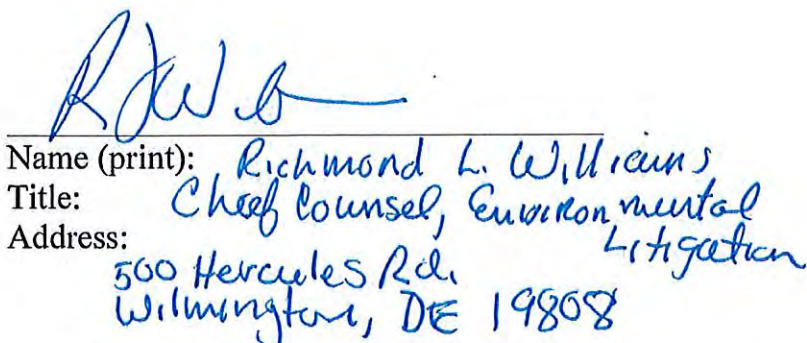 Name (print): Richmond L. Williams
Title: Chief Counsel, Environmental
Litigation
Address:
500 Hercules Rd.
Wilmington, DE 19808